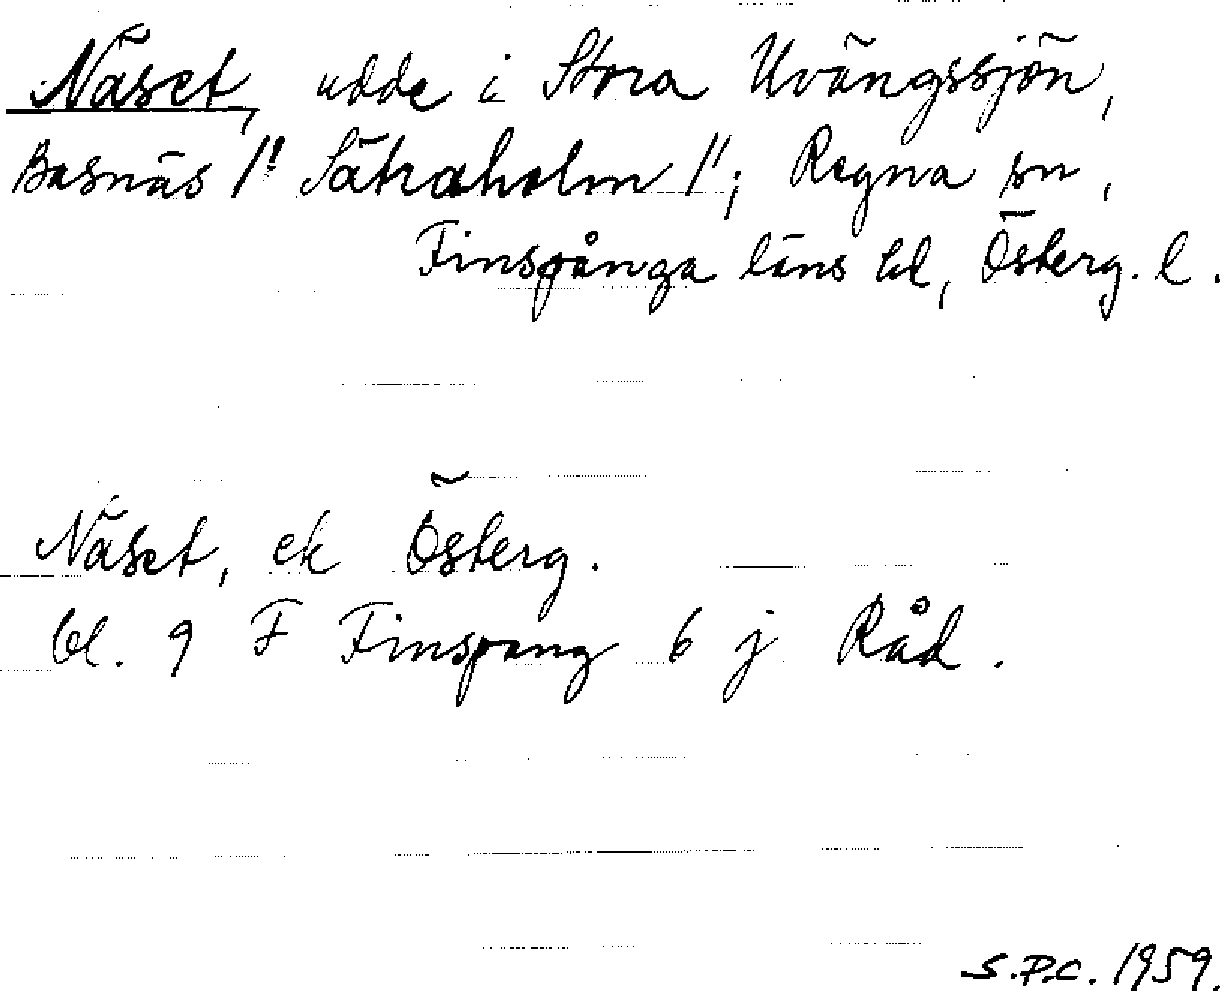 Näset, udde i Stora Uvängssjön,
Basnäs 1:1 Sätraholm 1:1; Regna sn,
Finspånga läns hd, Österg. l.
Näset, ek Österg.
bl. 9 F Finspång 6 j Råd.
S.P.C. 1959.